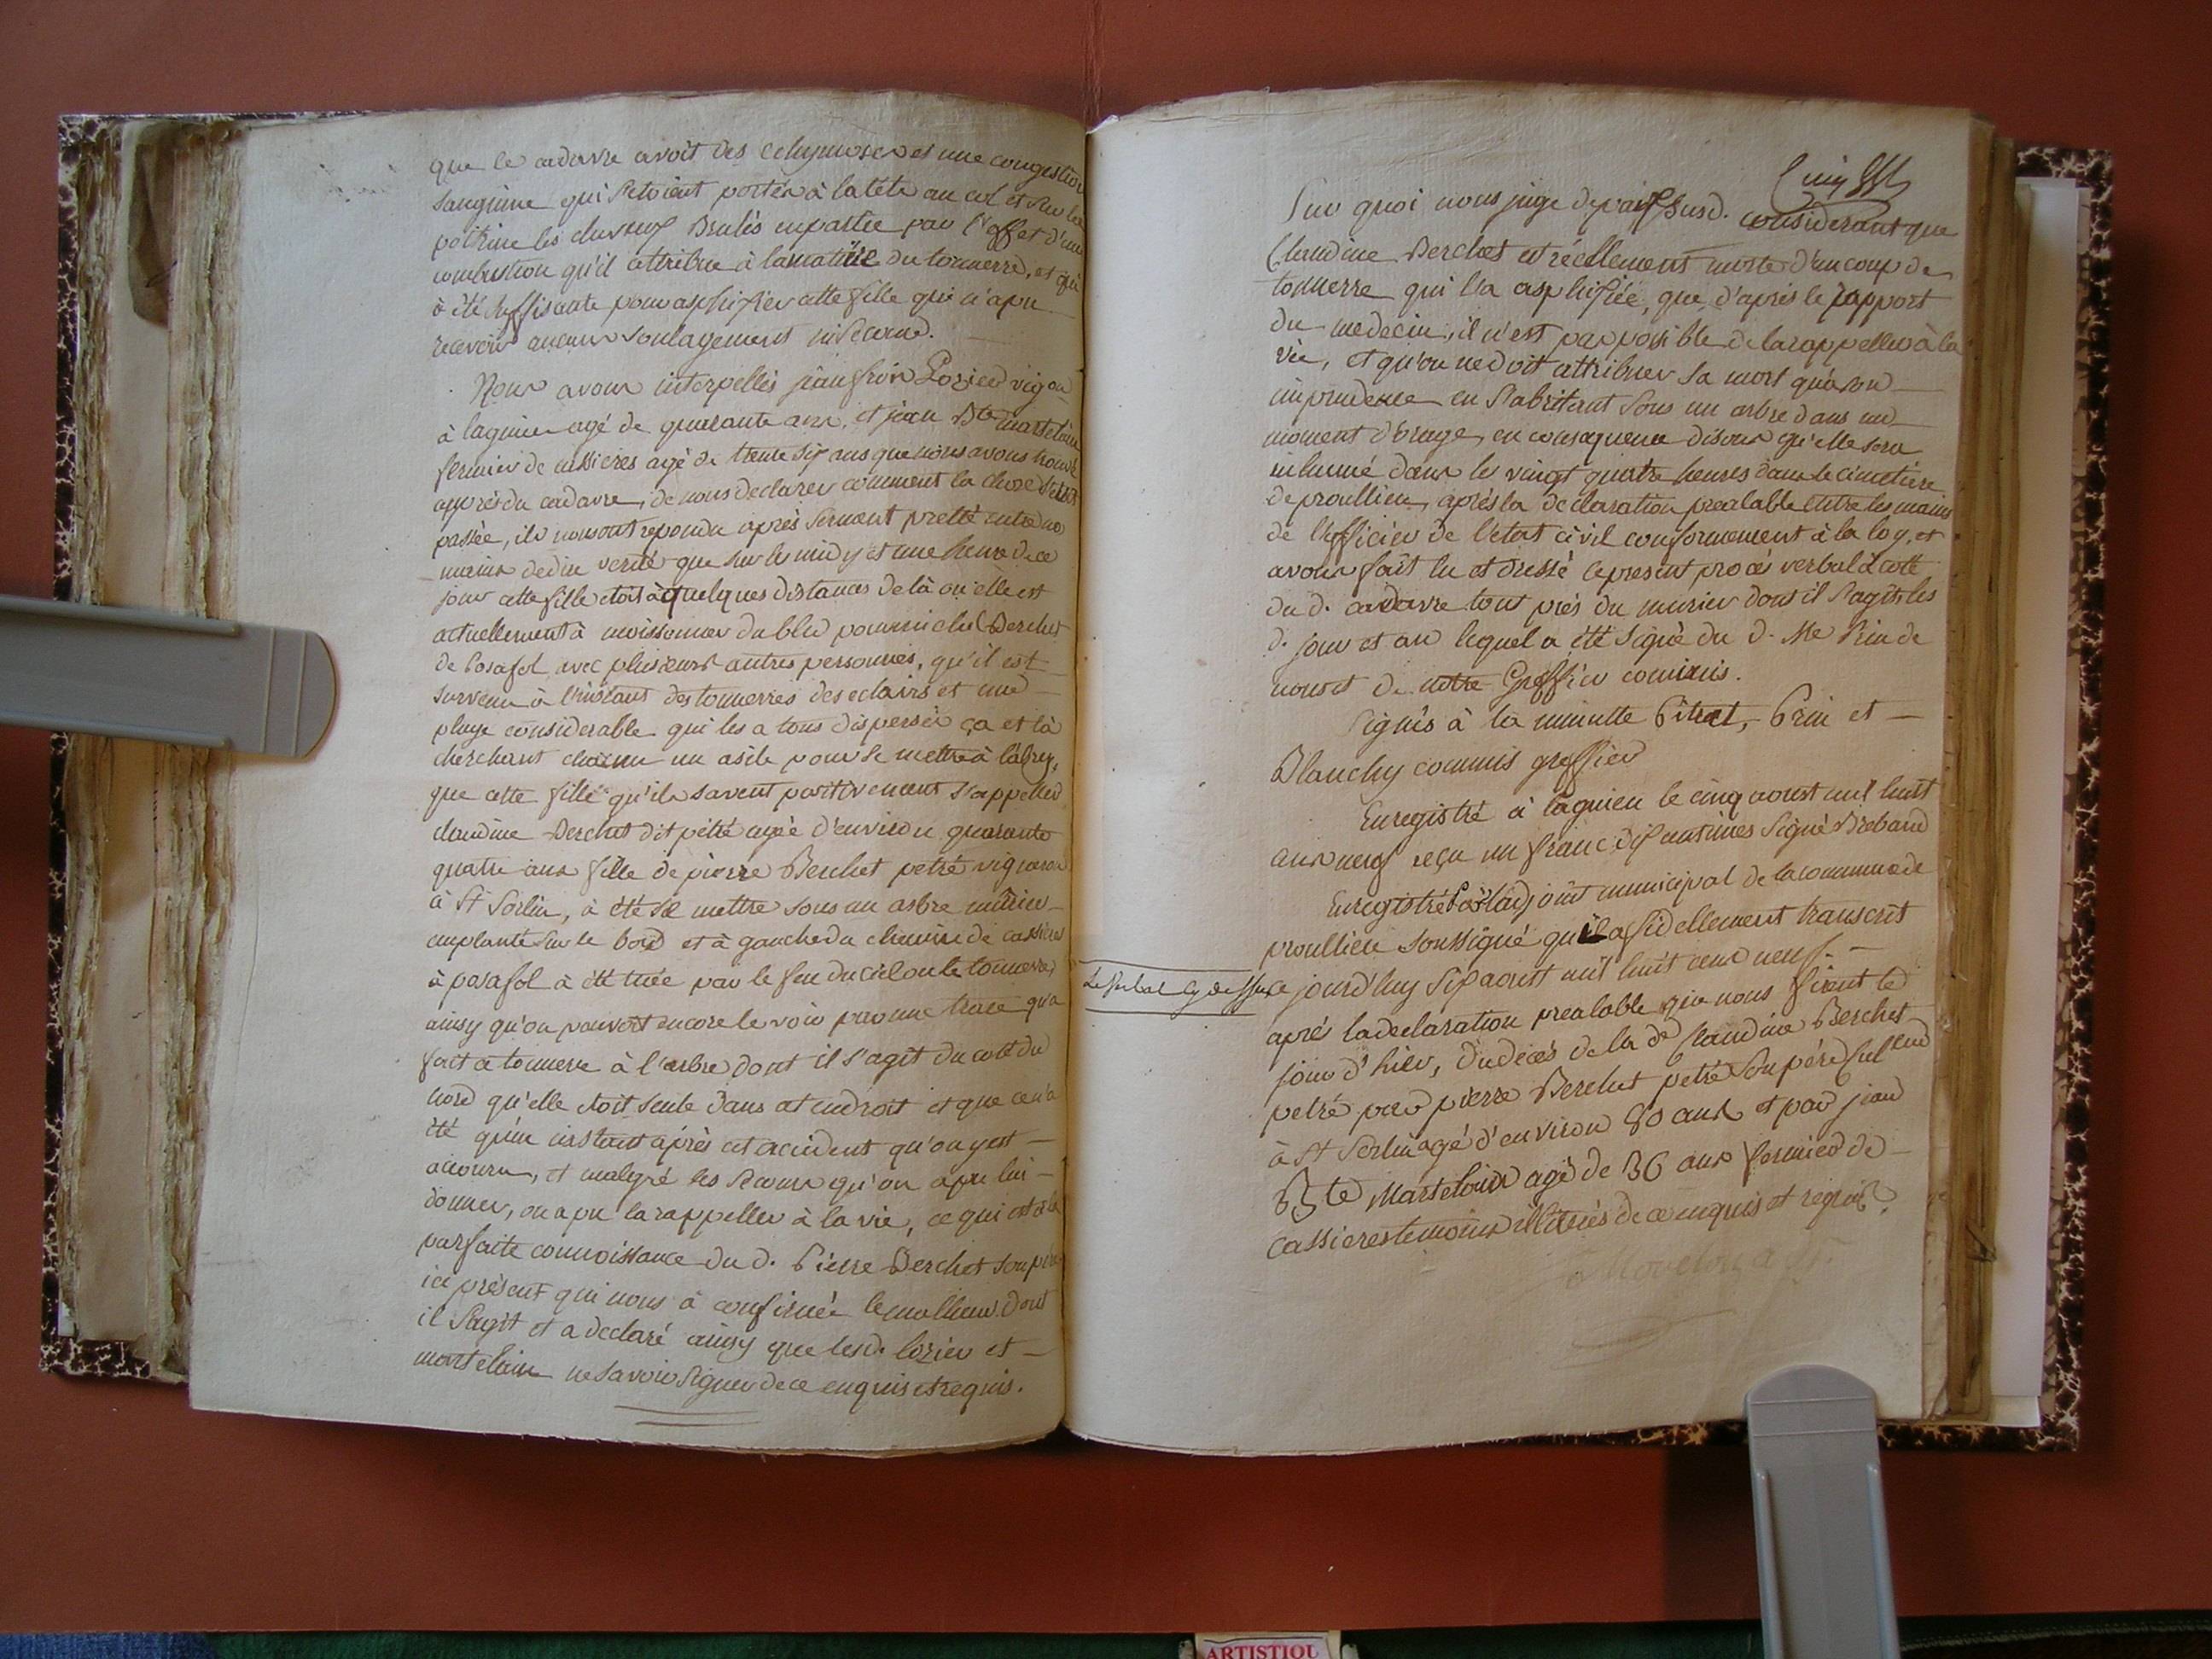 que le cadavre avoit des echymoses et une congestion
sanguine qui s'etoient portés à la tête au col et sur la
poitrine les cheveux brulés en partie par l'effet d'une
combustion qu'il attribue à la matière du tonnerre, et qui
à été suffisante pour asphisier cette fille qui n'a pu
recevoir aucuns soulagement ni secours.
Nous avons interpellés jean Lozier vigon
à lagnieu agé de quarante ans, et jean Bte martelain
fermier de cassieres agé de trente six ans que nous avons trouvé
auprès du cadavre, de nous declarer comment la chose s'etoit
passée, ils nous ont repondu après serment pretté entre nos
mains de dire verité que sur les midy et une heure de ce
jour cette fille etoit à quelques distances de là ou elle est
actuellement à moissonner du bled pour michel Berchet
de Posafol avec plusieurs autres personnes, qu'il est
survenu à l'instant des tonnerres des eclairs et une
pluye considerable qui les a tous dispersés ça et là
cherchant chacun un asile pour se mettre à l'abry,
que cette fille qu'ils savent positivement s'appeller
claudine Berchet dit pétré agée d'environ quarante
quatre ans fille de pierre Berchet petré vigneron
à St Sorlin, à été se mettre sous un arbre mûrier
emplanté sur le bord et à gauche du chemin de cassieres
à posafol à été tuée par le feu du ciel ou le tonnerre
ainsy qu'on pouvoit encore le voir par une trace qu'a
fait ce tonnerre à l'arbre dont il s'agit du coté du
nord qu'elle etoit seule dans cet endroit et que ce n'a
été qu'un instant après cet accident qu'on y est
accouru, et malgré les secours qu'on a pu lui
donner, on a pu la rappeller à la vie, ce qui est à la
parfaite connoissance du d. Pierre Berchet son père
ici présent qui nous à confirmée le malheur dont
il s'agit et a declaré ainsy que lesd. lozier et
martelain ne savoir signer de ce enquis et requis.
Sur quoi nous juge de paix susd. considerant que
Claudine Berchet est réellement morte d'un coup de
tonnerre qui l'a asphisiée, que d'après le rapport
du medecin, il n'est pas possible de la rappeller à la
vie, et qu'on ne doit attribuer sa mort qu'à son
imprudence en s'abritant sous un arbre dans un
moment d'orage, en consequence disons qu'elle sera
inhumé dans les vingt quatre heures dans le cimetière
de proullieu, après la declaration prealable entre les mains
de l'officier de l'etat civil conformement à la loy, et
avons fait lu et dressé le present procès verbal à coté
du d. cadavre tout près du murier dont il s'agit, les
d. jour et an lequel a été signé du d. Me Prin de
nous et de notre Greffier commis.
Signés à la minutte Pitrat, Prin et
Blanchy commis greffier
Enregistré à lagnieu le cinq aoust mil huit
cens neuf reçu un franc dix centimes signé Breband
Enregistré Par l'adjoint municipal de la commune de
proullieu soussigné qu'il a fidellement transcrit
Le Verbal cy dessus
ce jourd'huy six aoust mil huit cens neuf.
après la declaration prealable que nous firent le
jour d'hier, du decès de la de Claudine Berchet
petré par pierre Berchet petré son pére cultend
à St Sorlin agé d'environ 80 ans et par jean
Bte Martelain agé de 36 ans fermier de
cassieres temoins illiterés de ce enquis et requis.
ARTISTIQU